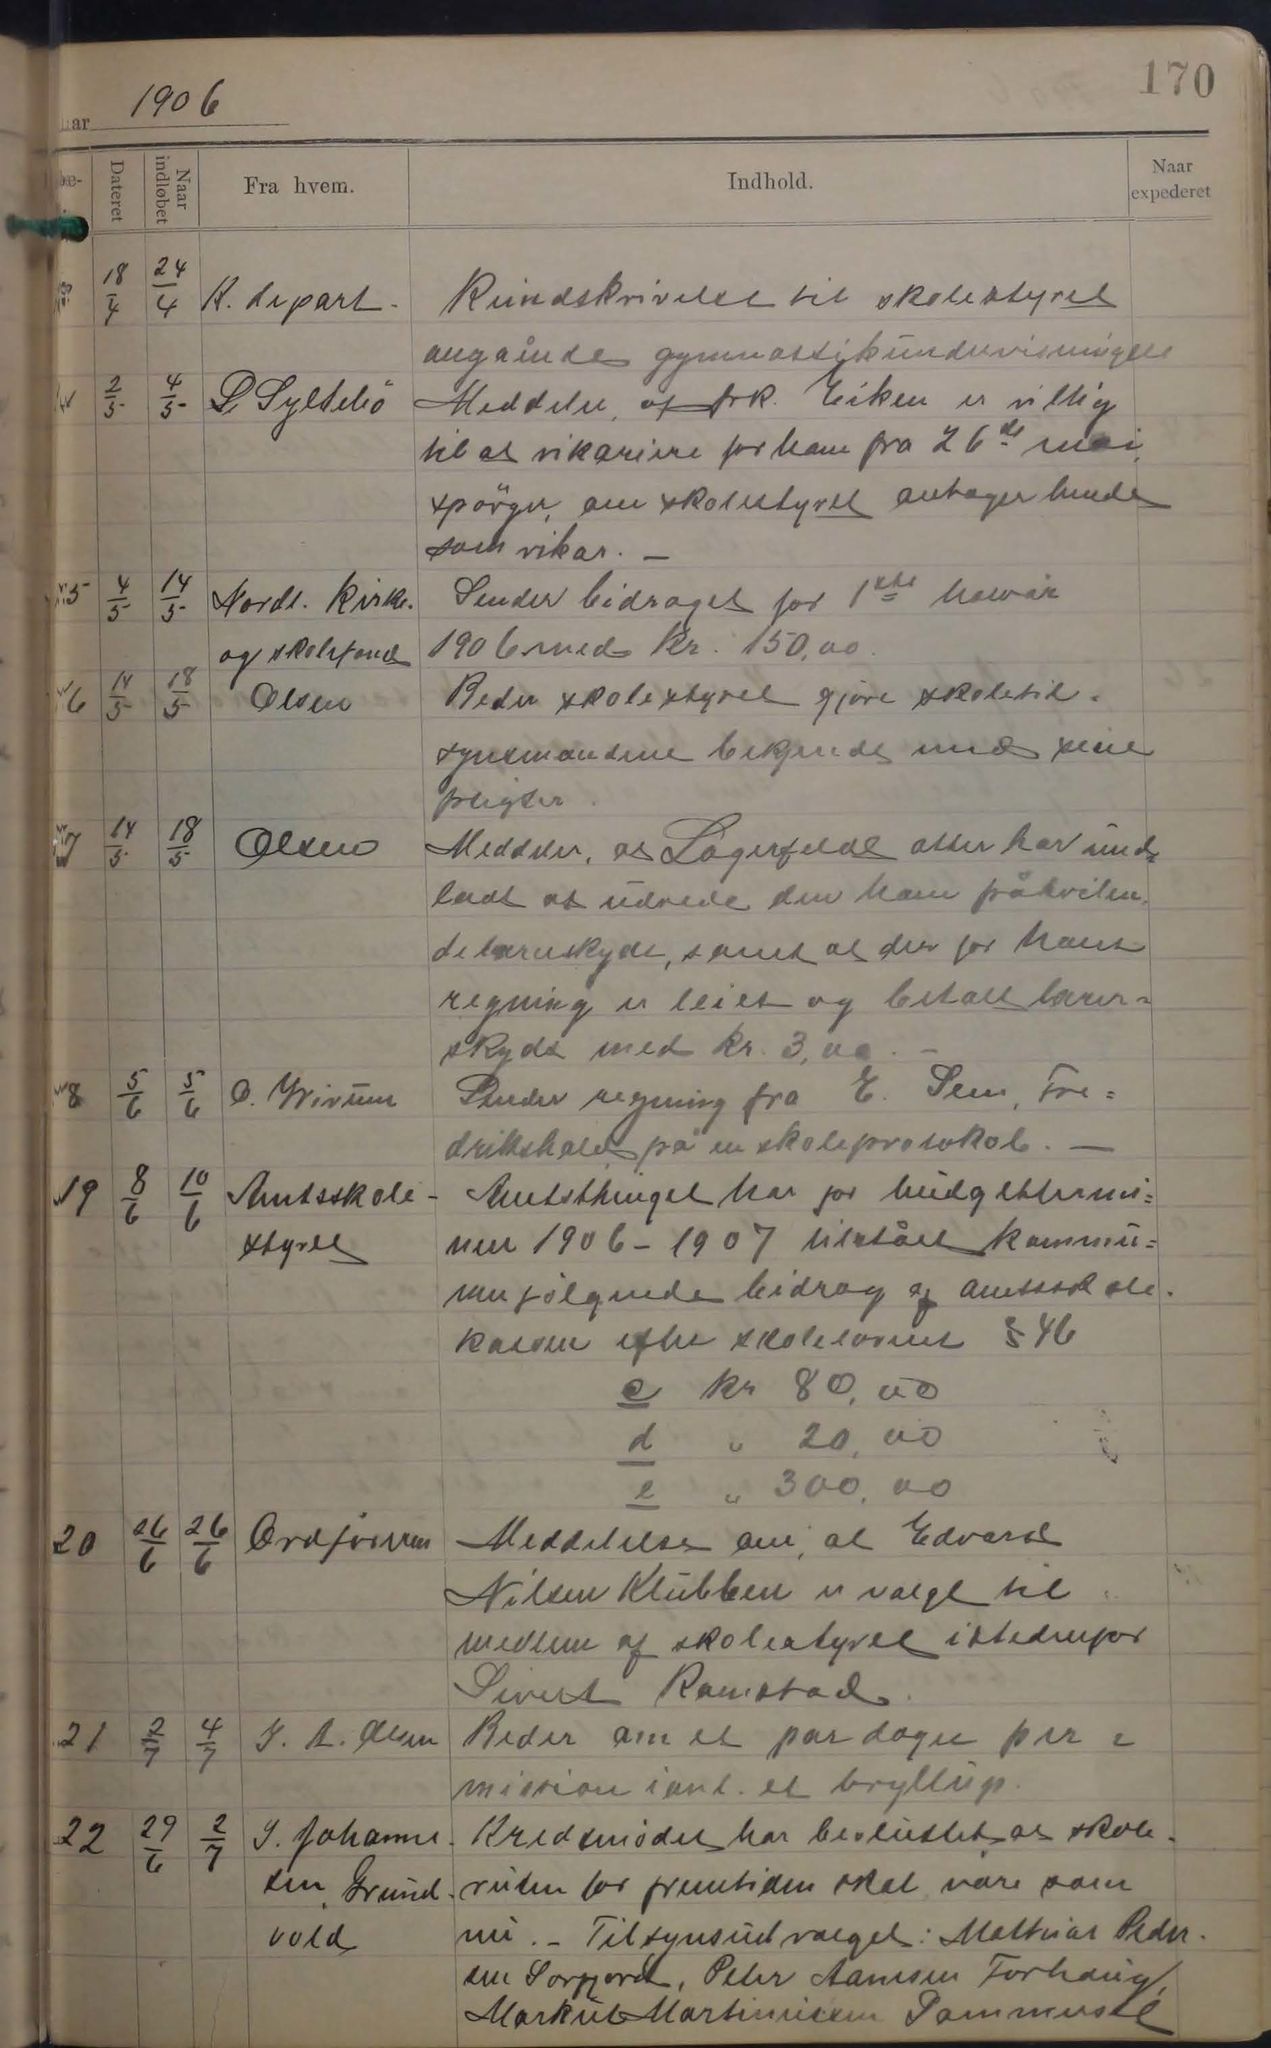 170
1906
Dateret
Naar indløbet
Fra hvem.
Indhold.
Naar expederet
18/4 24/4 K. depart. Rundskrivelse til skolestyret
angående gymnastikundervisningen
2/5 4/5 Meddeler, at frk. Eiken er villig
til at vikariere for ham fra 26de mai,
spörger, om skolestyret antager hende
som vikar. —
15 4/5 14/5 Nordl. Kirke- Sender bidraget for 1ste halvår
og skolefond 1906 med kr. 150,00.
16 14/5 18/5 Olsen Beder skolestyret gjöre skoletil-
synsmændene bekjendt med sine
pligter.
17 14/5 18/5 Olsen Meddeler, at Lögerfeldt atter har und-
ladt at udrede den ham påhvilen-
de lærerskyds, samt at der for hans
regning er leiet og betalt lærer-
skyds med kr. 3,00. —
18 5/6 5/6 Sender regning fra E. Sem, Fre-
drikshald på en skoleprotokol. —
19 8/6 10/6 Amtsskole- Amtsthinget har for budgettermi-
styret nen 1906-1907 tilstået kommu-
nen fölgende bidrag af amtsskole-
kassen efter skolelovens § 46
c kr 80,00
d " 20,00
e " 300,00
20 26/6 26/6 Ordföreren Meddelelse om, at Edvard
Nilsen Klubben er valgt til
medlem af skolestyret istedenfor
Sivert Ramstad.
21 2/7 4/7 J. A. Olsen Beder om et par dages per-
mission i anl. et bryllup.
22 29/6 2/7 J. Johanne- Kredsmödet har besluttet at skole-
sen, Grund- ruten for fremtiden skal være som
vold nu. – Tilsynsudvalget: Mathias Peder-
sen Sörfjord, Peter Aamsen Forhaug,
Markus Martinussen